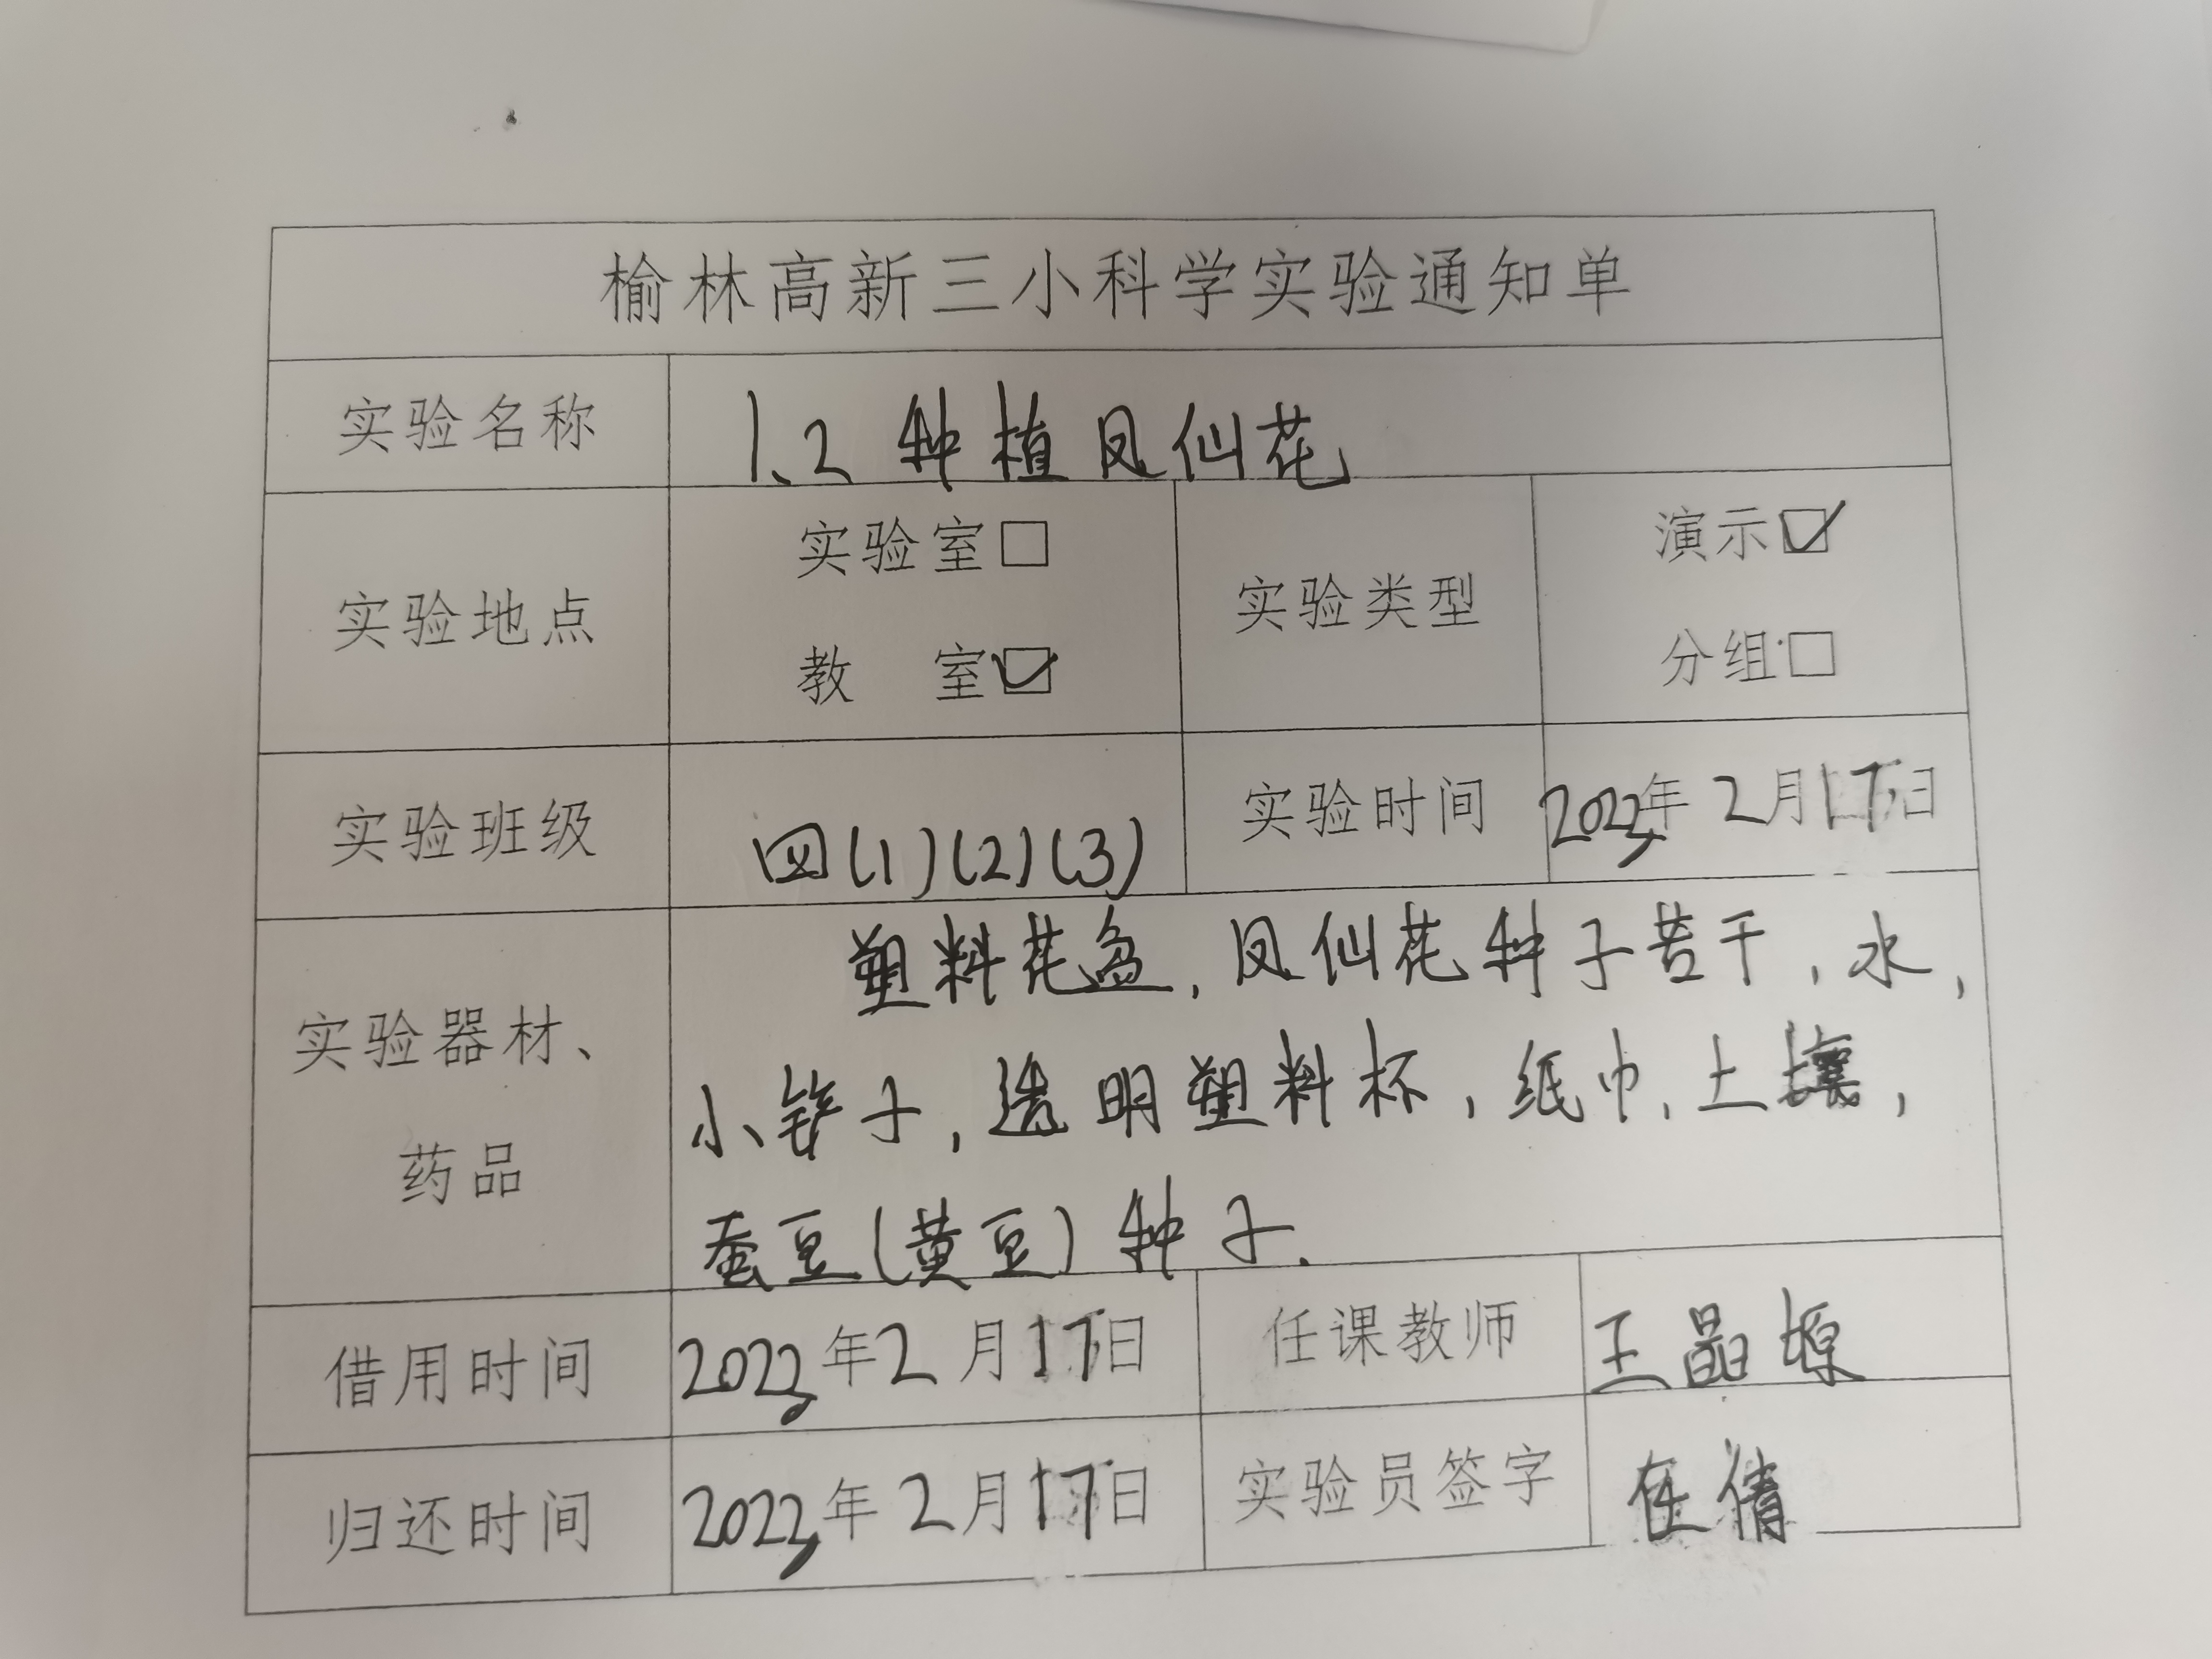 榆林高新三小科学实验通知单
实验名称 1.2 种植凤仙花
实验地点 实验室☐ 教 室☑ 实验类型 演示☑ 分组☐
实验班级 四(1)(2)(3) 实验时间 2023年2月17日
实验器材、药品
塑料花盆,凤仙花种子若干,水,
小铲子,透明塑料杯,纸巾,土壤,
蚕豆(黄豆)种子.
借用时间 2023年2月17日 任课教师 王晶塬
归还时间 2023年2月17日 实验员签字 任倩